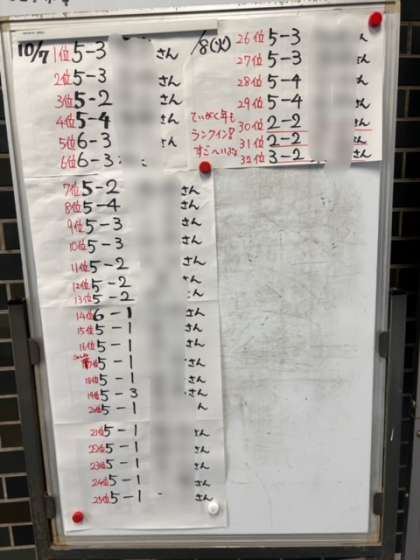 10/7
1位 5-3 さん
2位 5-3 さん
3位 5-2 さん
4位 5-4 さん
5位 6-3 さん
6位 6-3 さん
7位 5-2 さん
8位 5-4 さん
9位 5-3 さん
10位 5-3 さん
11位 5-2 さん
12位 5-2 さん
13位 5-2 さん
14位 6-1 さん
15位 5-1 さん
16位 5-1 さん
5-1 さん
18位 5-1 さん
19位 5-3 さん
20位 5-1 ん
21位 5-1 さん
22位 5-1 さん
23位 5-1 さん
24位 5-1 さん
25位 5-1 さん
/8(火)
26位 5-3 ん
27位 5-3 ん
28位 5-4 さん
29位 5-4 さん
30位 2-2 さん
31位 2-2 さん
32位 3-2 さん
ていがく年も
ランクイン!?